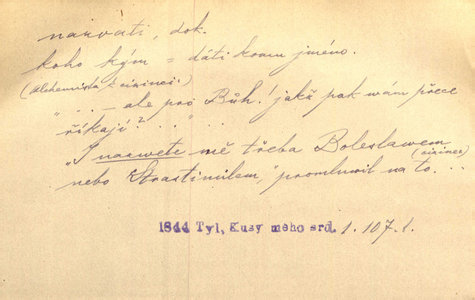 nazvati, dok.
koho kým = dáti komu jméno.
(alchemista k cizinci:)
" . . – ale pro Bůh! jakž pak wám přece
říkají? . . . " . .
"I nazwete mě třeba Boleslawem
(cizinec)
nebo Strastimilem," promluwil na to . . .
1844 Tyl, Kusy mého srd. 1. 107.